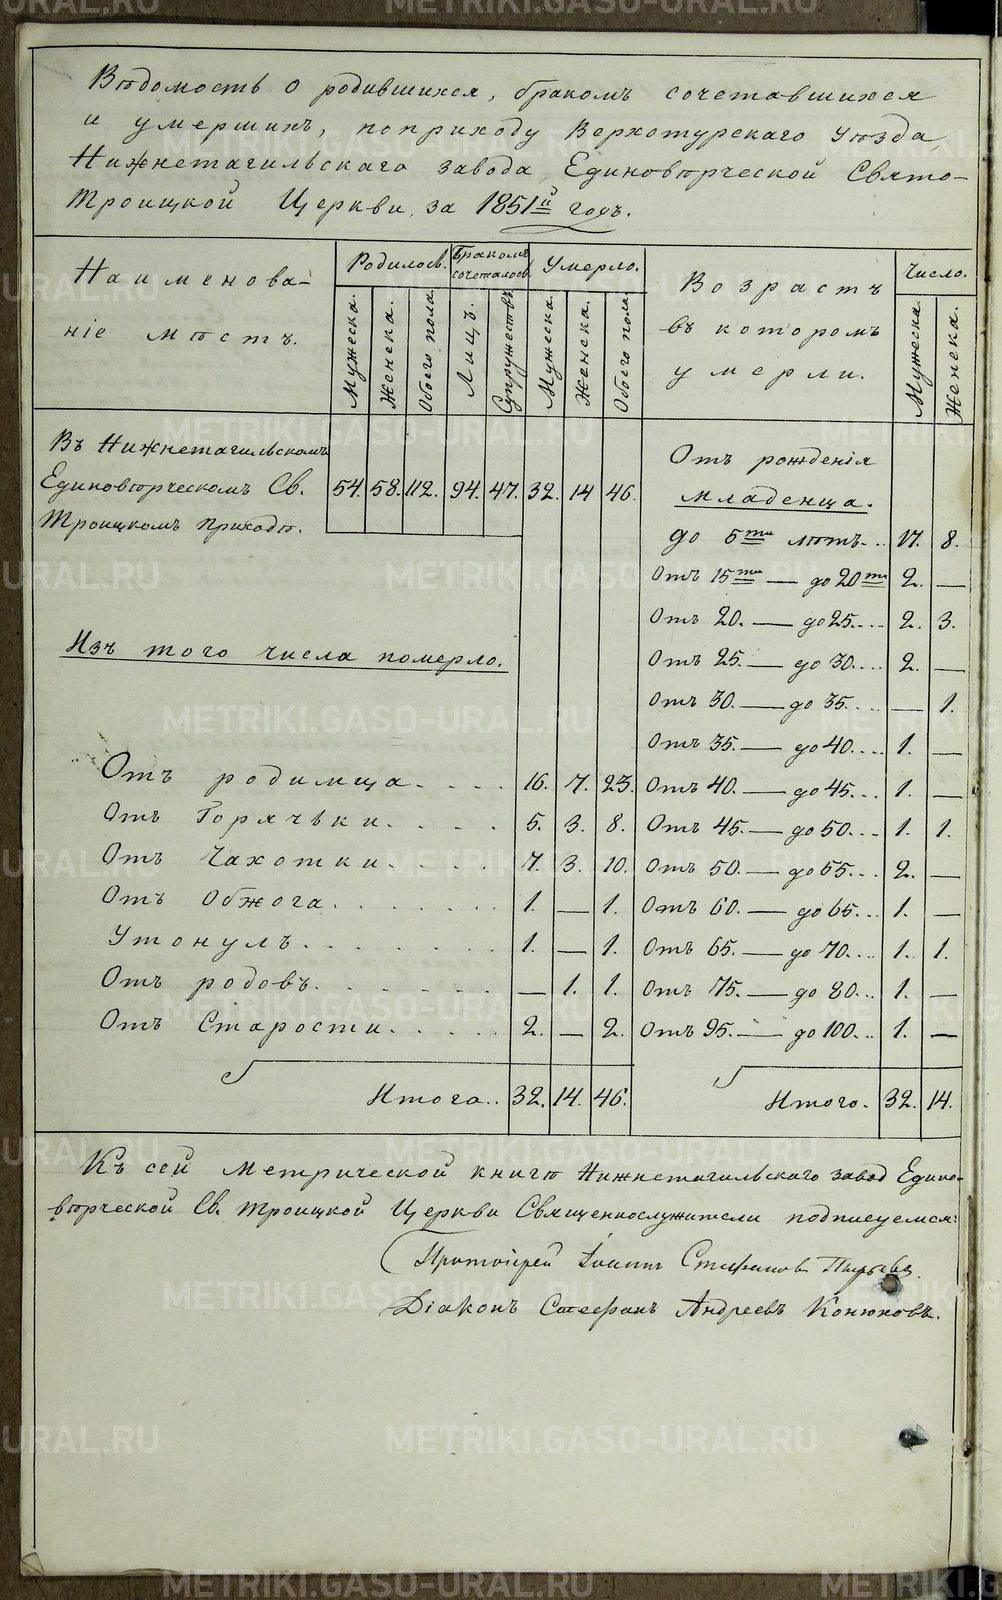 Вѣдомость о родившихся, бракомъ сочетавшихся
и умершихъ, по приходу Верхотурскаго уѣзда,
Нижнетагильскаго завода, Единовѣрческой Свято-
Троицкой Церкви, за 1851й годъ.
Наименова-
ніе мѣстъ.
Родилось.
Бракомъ сочеталось
Умерло.
Возрастъ
въ которомъ
умерли.
Число.
Мужеска.
Женска.
Обоего пола.
Лицъ.
Супружествъ
Мужеска.
Женска.
Обоего пола.
Мужеска.
Женска.
Въ Нижнетагильскомъ
Единовѣрческомъ Св. 54. 58. 112. 94. 47. 32. 14 46.
Троицкомъ приходѣ.
Изъ того числа померло.
Отъ родимца.... 16. 7. 23.
Отъ Горячьки.... 5. 3. 8.
Отъ Чахотки.... 7. 3. 10.
Отъ Обжога...... 1. — 1.
Утонулъ....... 1. — 1.
Отъ родовъ...... — 1. 1.
Отъ Старости.... 2. — 2.
Итого.. 32. 14. 46.
Отъ рожденія
младенца.
до 5ти лѣтъ.. 17. 8.
Отъ 15ти — до 20ти 2. —
Отъ 20. — до 25.... 2. 3.
Отъ 25. — до 30.... 2. —
Отъ 30. — до 35.... — 1.
Отъ 35. — до 40.... 1. —
Отъ 40. — до 45... 1. —
Отъ 45. — до 50... 1. 1.
Отъ 50. — до 55... 2. —
Отъ 60. — до 65... 1. —
Отъ 65. — до 70.... 1. 1.
Отъ 75. — до 80... 1. —
Отъ 95. — до 100... 1. —
Итого. 32. 14.
Къ сей метрической книгѣ Нижнетагильскаго завод Едино-
вѣрческой Св. Троицкой Церкви Священнослужители подписуемся:
Протоіерей Іоаннъ Стефановъ Пырьевъ.
Діаконъ Стефанъ Андреевъ Конюховъ.
METRIKI.GASO-URAL.RU